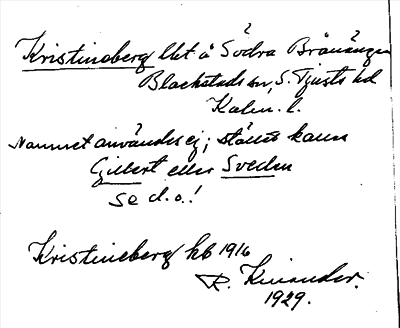 Kristineberg lht å Södra Bränänge
Blackstads sn, S. Tjusts hd
Kalm. l.
Namnet användes ej; stället kallas
Gillert eller Sveden
Se d.o.!
Kristineberg hb 1916
R. Kinander.
1929.